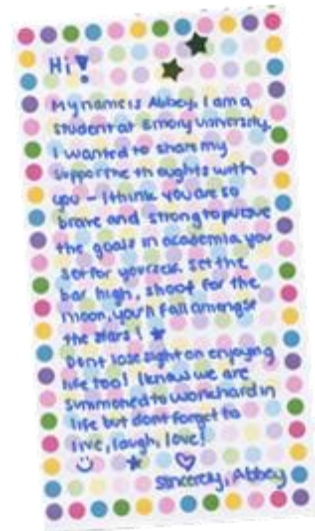 Hi!
My name is Abbey. I am a
student at Emory University.
I wanted to share my
supportive thoughts with
you – I think you are so
brave and strong to pursue
the goals in academia you
set for yourself. Set the
bar high, shoot for the
moon, you'll fall amongst
the stars!
Dont lose sight on enjoying
life too! I know we are
summoned to work hard in
life but dont forget to
live, laugh, love!
Sincerely, Abbey